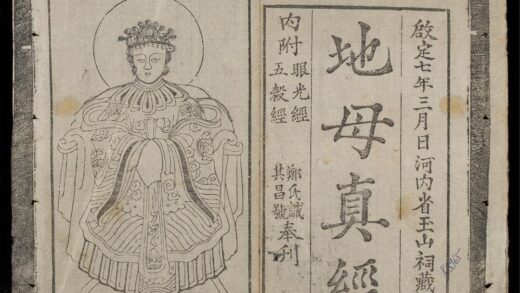 啟定七年三月日河内省玉山祠藏
地母真經
内附眼光經
五穀經
鄭氏誠
其昌號奉刊